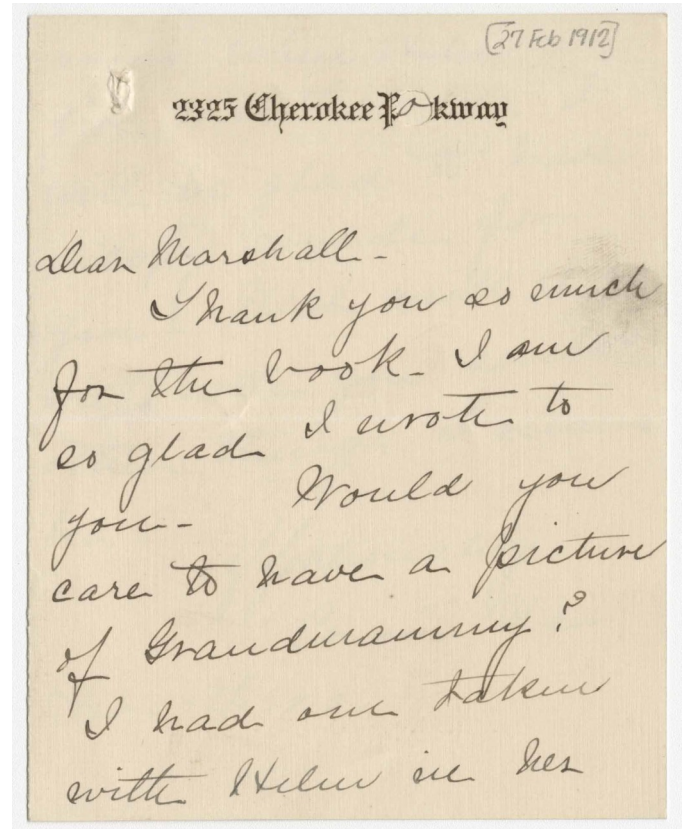 [27 Feb 1912]
2325 Cherokee Parkway
Dear Marshall -
Thank you so much
for the book - I am
so glad I wrote to
you - Would you
care to have a picture
of Grandmammy?
I had one taken
with Helen in her